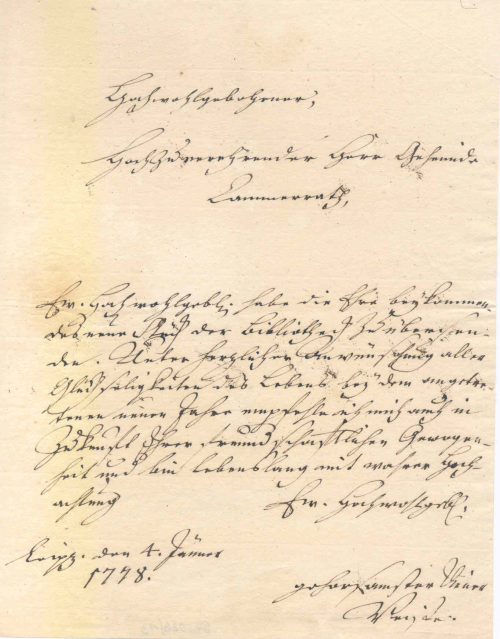 Hochwohlgebohrner,
Hochzuverehrender Herr Geheimde
Cammerrath,
Ew. Hochwohlgebl. habe die Ehre beykommen-
des neue Stück der Bibliotheck zu übersen-
den. Unter herzlicher Anwünschung aller
Glückseligkeiten des Lebens bey dem angetre-
tenen neuen Jahre empfehle ich mich auch in
Zukunft Ihrer freundschaftlichen Gewogen-
heit und bin lebenslang mit wahrer Hoch-
achtung
Ew. Hochwohlgebl.
Leipz. den 4. Jänner
1778.
gehorsamster Diener